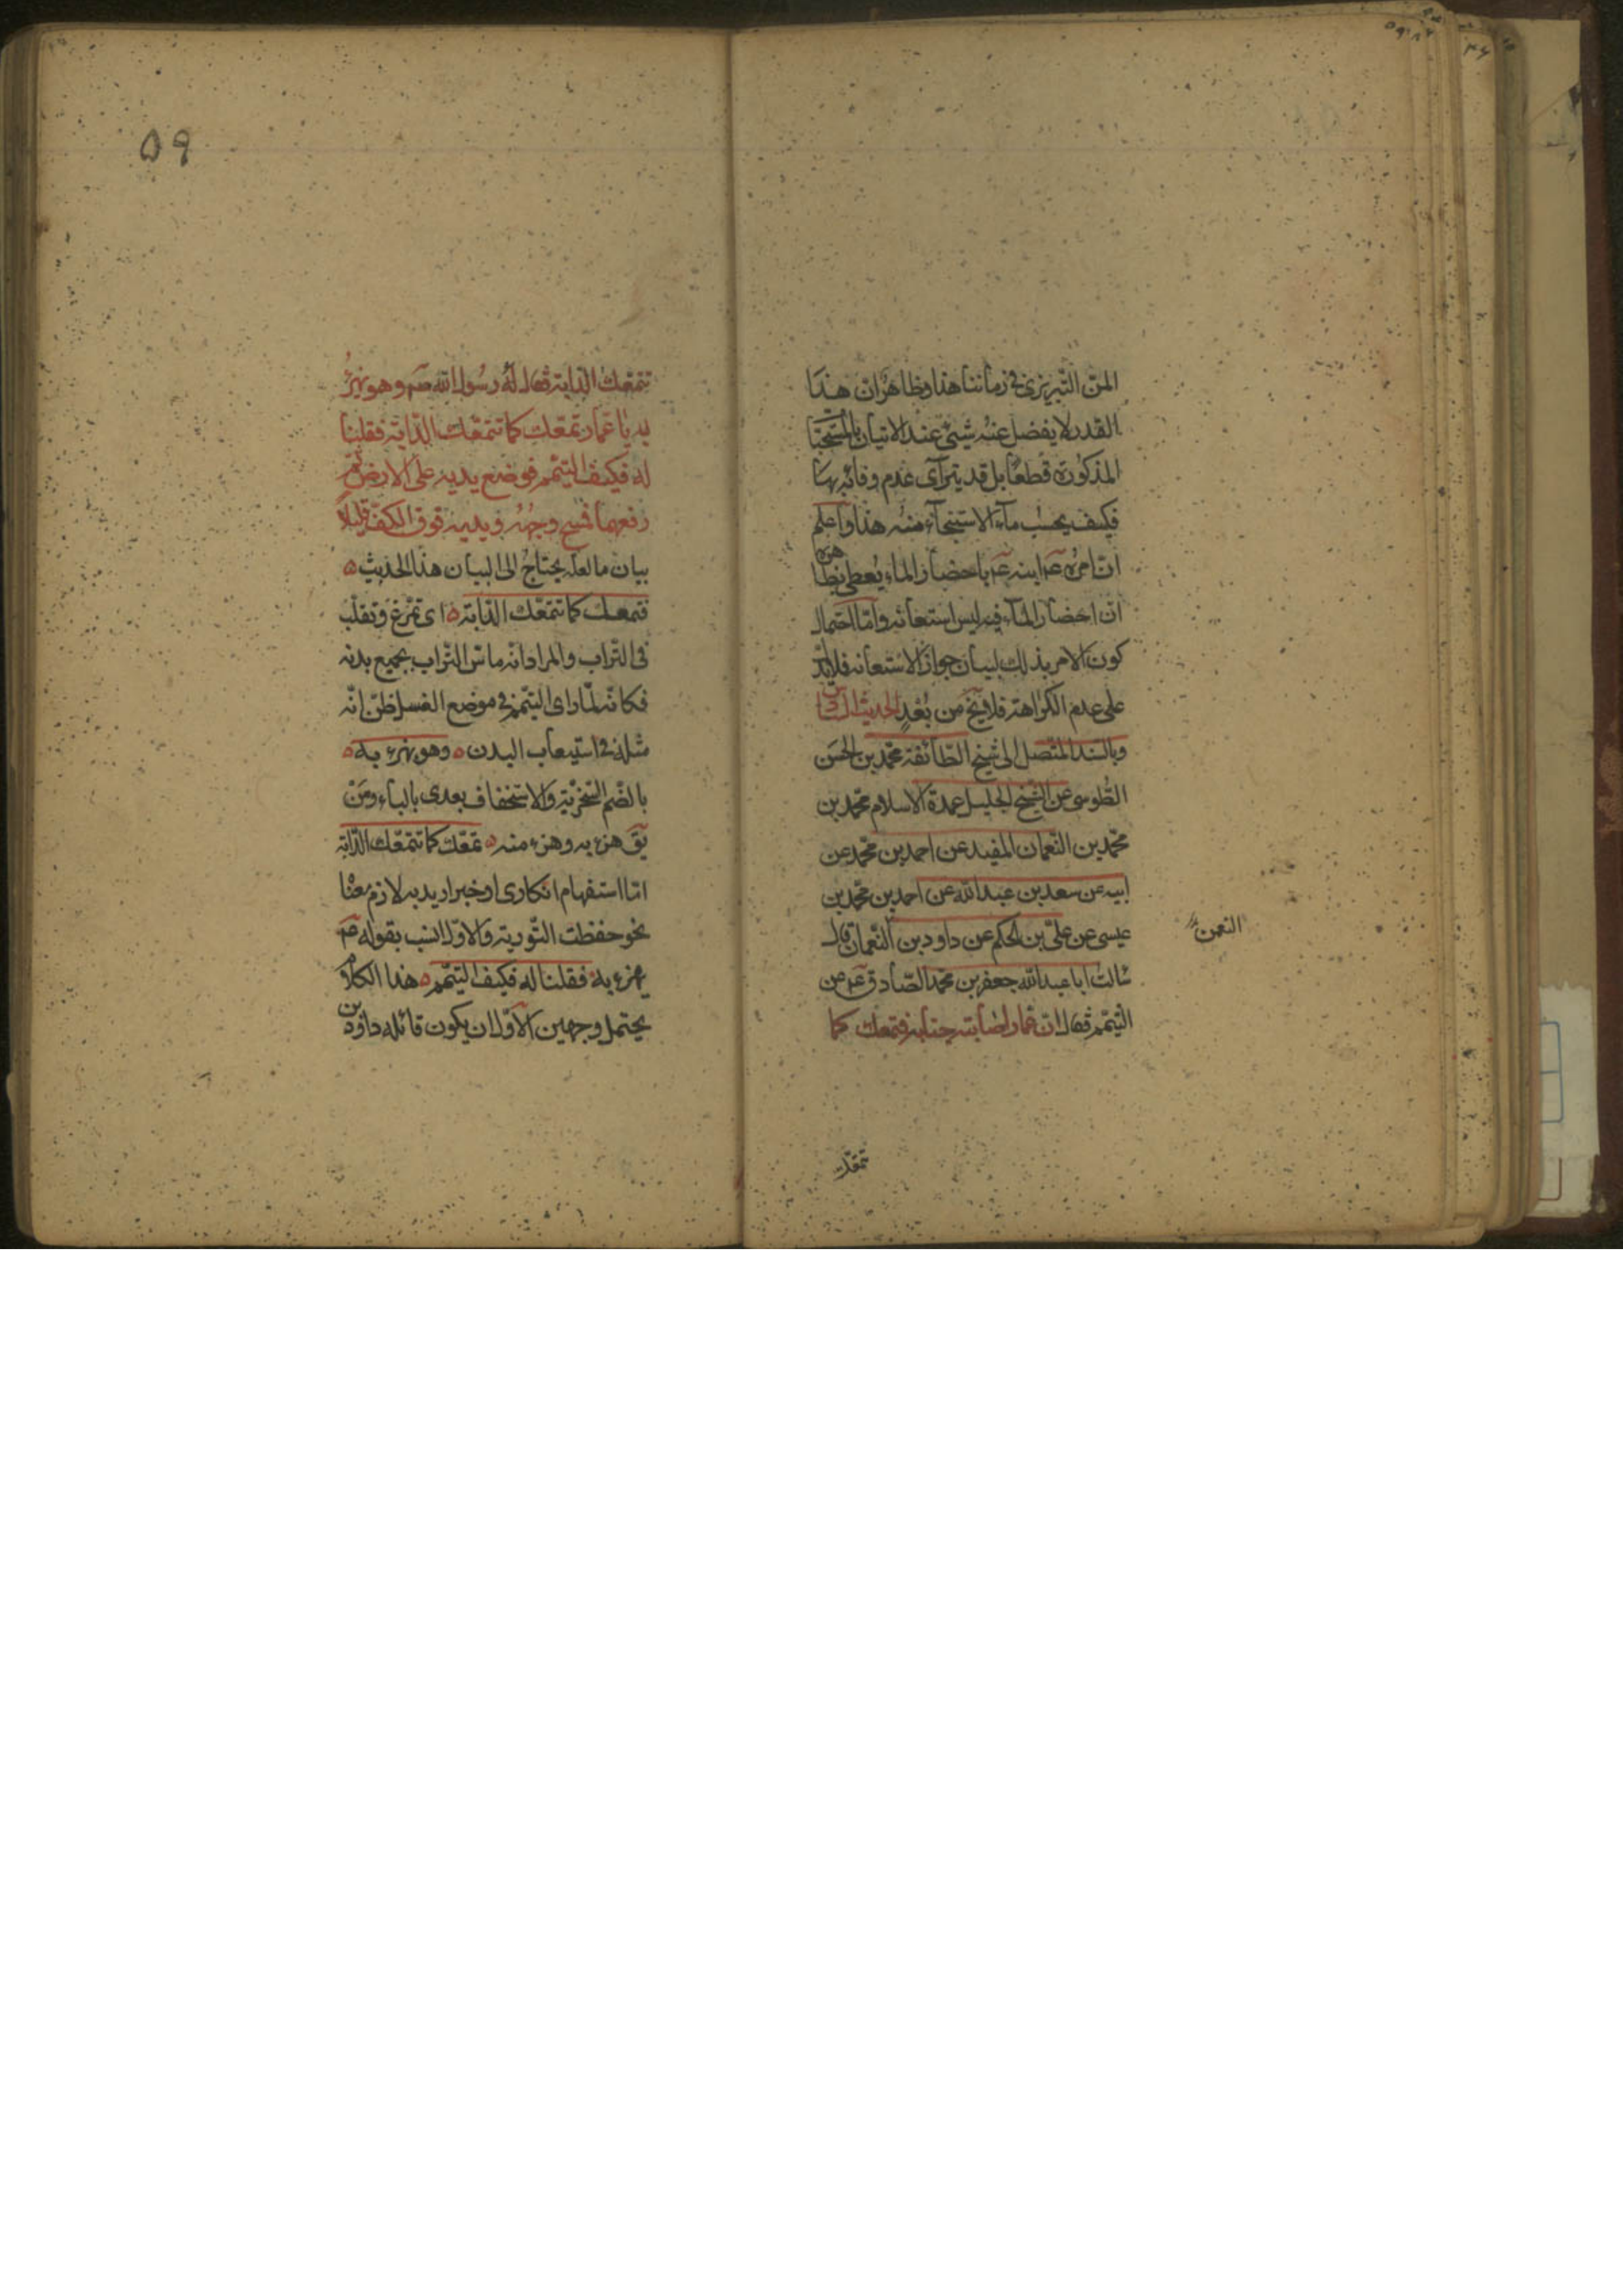 المن التبريزى فى زماننا هذا وظاهر ان هذا
القدر لا يفضل عنه شىء عند الاتيان بالمستحبا
المذكورة قطعا بل قد يترآى عدم وفائه بها
فكيف يحسب ماء الاستنجآء منه هذا واعلم
ان امره عم ابنه عم باحضار الماء يعطى بظاهره
ان احضار المآء فيه ليس استعانه وامّا احتمال
كون الامر بذلك لبيان جواز الاستعانه فلا يدّ
على عدم الكراهة فلا يخ من بُعْدٍ الحديث السّا
وبالسّند المتّصل الى شيخ الطّائفة محمّد بن الحسَن
الطّوسى عن الشيخ الجليل عمدة الاسلام محمّد بن
محمّد بن النّعمان المفيد عن احمد بن محمّد عن
ابيه عن سعد بن عبد الله عن احمد بن محمّد بن
عيسى عن علىّ بن الحكم عن داود بن النّعمان قال
النعمن
سالت ابا عبد الله جعفر بن محمّد الصّادق عم عن
التيّمم فقال ان عمار اصابته جنابة فتمعك كما
تتمعّك
٥٩
تتمعّك الدّابة فقال لهُ رسُول الله صم وهو يهزئ
به يا عمار تمعّك كما تتمعّك الدّابّة فقلنا
له فكيف التيّمم فوضع يديه على الارض ثم
رفعهما فمسح وجهه ويديه فوق الكف قليلاً
بيان ما لعله يحتاجُ الى البيان هذا الحديث ٥
فتمعّك كما تتمعّك الدّابّة ٥ اى تمرّغ وتقلّب
فى التّراب والمراد انّه ماسّ التّراب بجميع بدنه
فكانّه لمّا راى التيّمم فى موضع الغسل ظنّ انّه
مثله فى استيعاب البدن ٥ وهو يهزء به ٥
بالضّم السّخريّة والاستخفاف يعدى بالباء ومنْ
يق هزء به وهزء منه ٥ تمعّك كما تتمعّك الدّابّة
امّا استفهام انكارى او خبر اريد به لازم معنا
نحو حفظت التّورية والاوّل انسب بقوله صم
يهزء به فقلنا له فكيف التيّمم ٥ هذا الكلام
يحتمل وجهين الاوّل ان يكون قائله داود بن